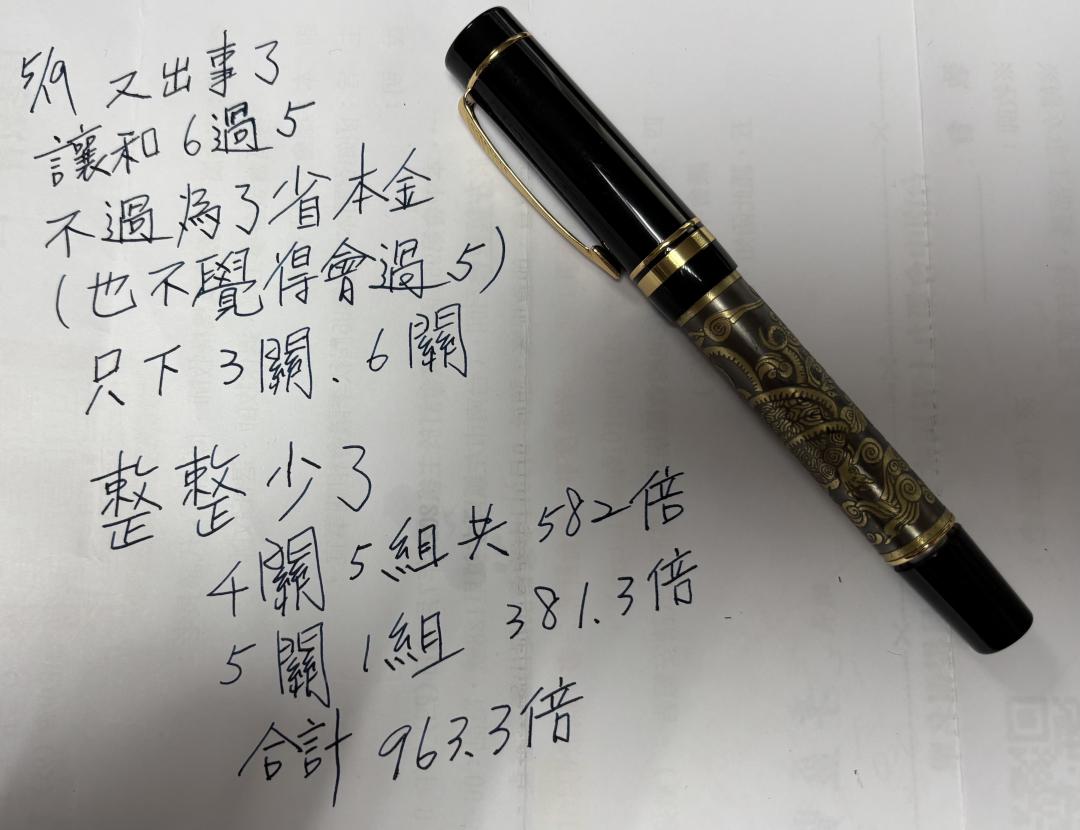 5/9 又出事了
讓和6過5
不過為了省本金
(也不覺得會過5)
只下3關、6關
整整少了
4關5組共582倍
5關1組 381.3倍
合計963.3倍